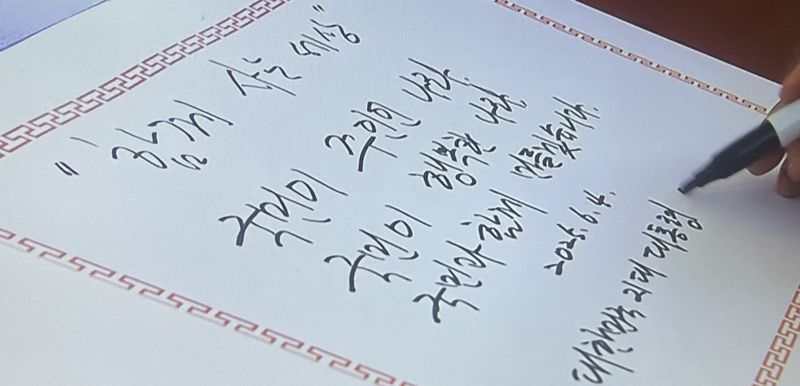 "함께 사는 세상"
국민이 주인인 나라,
국민이 행복한 나라,
국민과 함께 만들겠습니다.
2025. 6. 4.
대한민국 21대 대통령